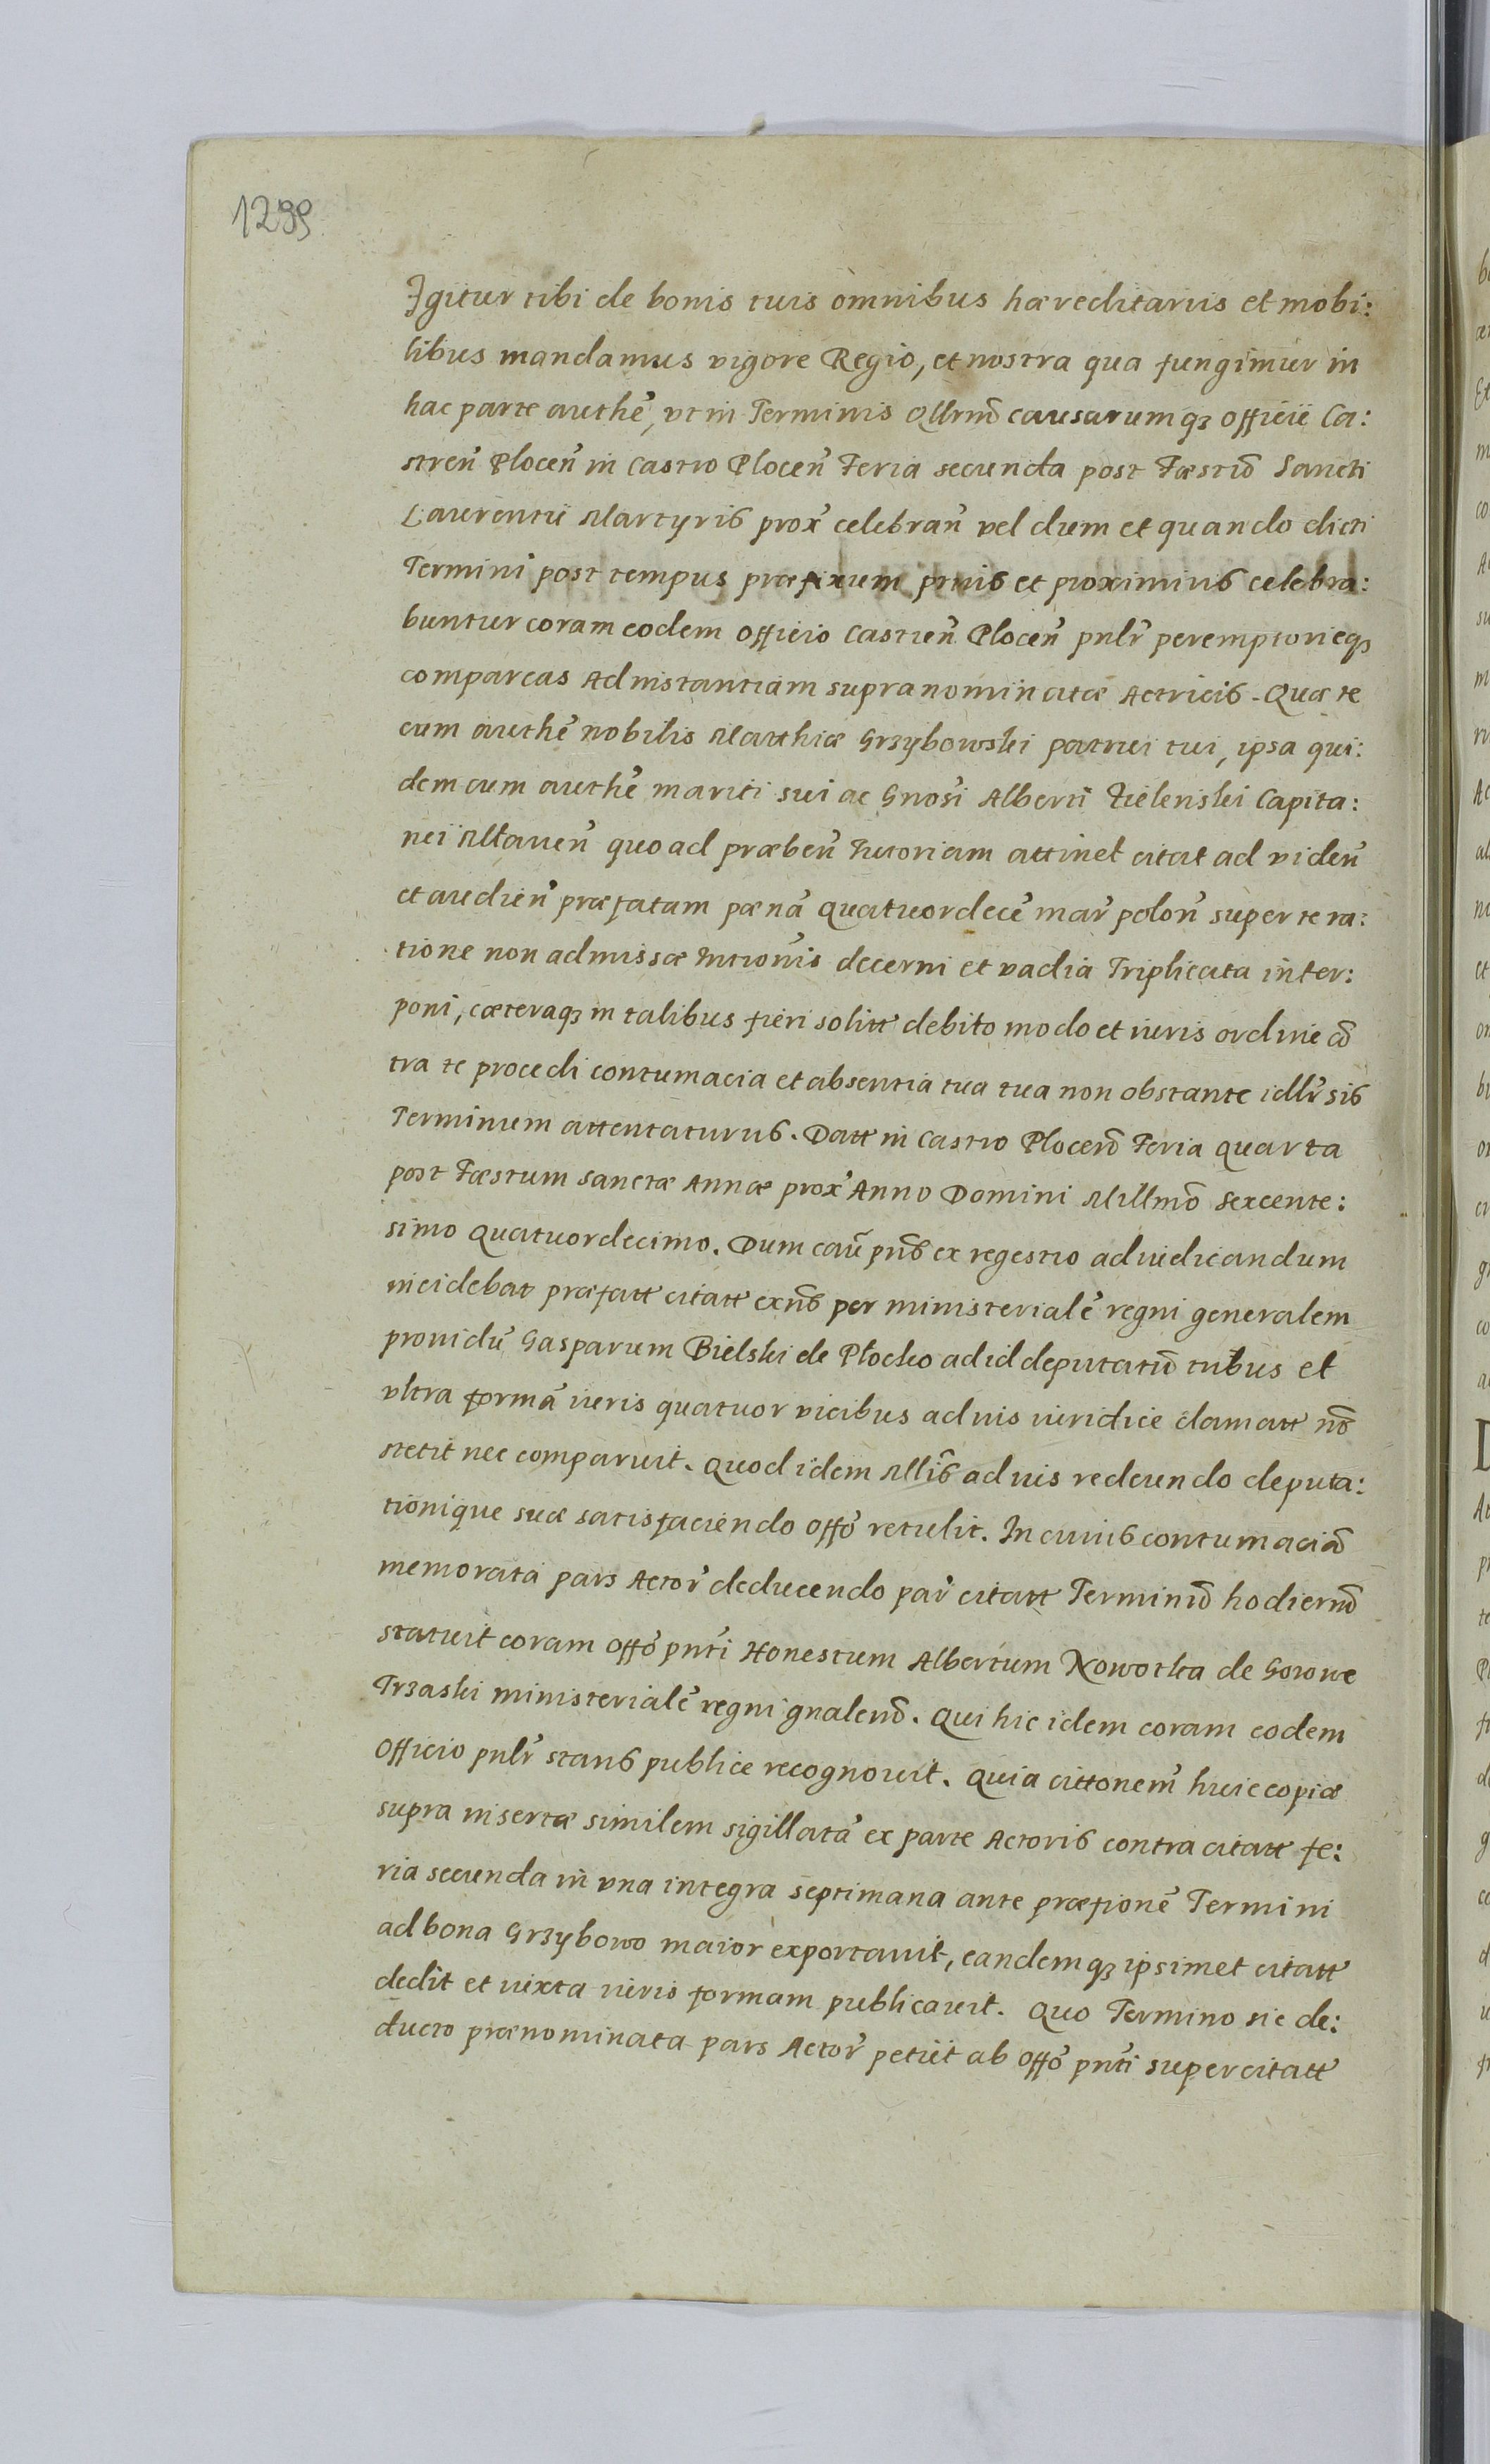 1299
Igitur tibi de bonis tuis omnibus hæreditariis et mobi:
libus mandamus vigore Regio, et nostra qua fungimur in
hac parte authẽ, vt in Terminis Qllrũ causarumqȝ officii Ca:
streñ Ploceñ in Castro Ploceñ Feria secunda post Fæstũ Sancti
Laurentii Martyris prox̃ celebrañ vel dum et quando dicti
Termini post tempus præfixum prius et proximius celebra:
buntur coram eodem officio Castreñ Ploceñ pnlr̃ peremptorieqȝ
compareas Ad instantiam supranominatæ Actricis. Quæ te
cum authẽ nobilis Matthiæ Grzybowski patrui tui, ipsa qui:
dem cum authẽ mariti sui ac Gnosi Alberti Zielenski Capita:
nei Mławeñ quoad præbeñ Intoriam attinet citat ad videñ
et audieñ præfatam pænã quatuordecẽ mar̃ poloñ super te ra:
tione non admissæ Intionis decerni et vadia Triplicata inter:
poni, cæteraqȝ in talibus fieri solitt debito modo et iuris ordine cõ
tra te procedi contumacia et absentia tua tua non obstante idlr̃ sis
Terminum attentaturus. Datt in Castro Plocen̄ Feria quarta
post Fæstum Sanctæ Annæ prox̃ Anno Domini Millmõ Sexcente:
simo Quatuordecimo. Dum caũ pns̃ ex regestro adiudicandum
incidebat præfatt citatt exns̃ per ministerialẽ regni generalem
prouidũ Gasparum Bielski de Płocko ad id deputatũ tribus et
vltra formã iuris quatuor vicibus ad iuis iuridice clamatt nõ
stetit nec comparuit. Quod idem Mlis̃ ad iuis redeundo deputa:
tionique suæ satisfaciendo offõ retulit. In cuius contumaciã
memorata pars Actor̃ deducendo par̃ citatt Terminũ hodiernũ
statuit coram offõ pnti Honestum Albertum Nowotka de Gorowe
Trzaski ministerialẽ regni gnalem̃. Qui hic idem coram eodem
officio pnlr̃ stans publice recognouit. Quia cittonem̃ huic copiæ
supra insertæ similem sigillatã ex parte Actoris contra citatt fe:
ria secunda in vna integra septimana ante præfionẽ Termini
ad bona Grzybowo maior exportauit, eandemqȝ ipsimet citatt
dedit et iuxta iuris formam publicauit. Quo Termino sic de:
ducto prænominata pars Actor̃ petiit ab offõ pnti super citatt